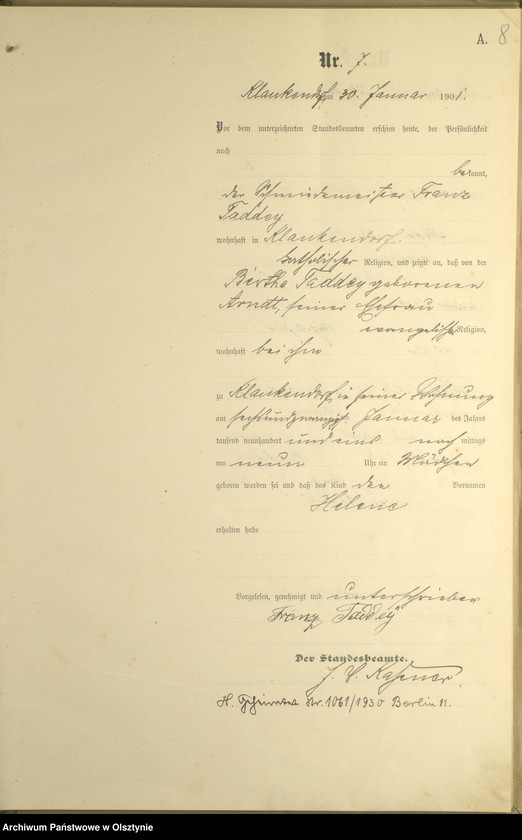 A. 8
Nr. 7.
Klaukendorf am 30. Januar 1901.
Vor dem unterzeichneten Standesbeamten erschien heute, der Persönlichkeit
nach
bekannt,
der Schmiedemeister Franz
Taddey
wohnhaft in Klaukendorf
katholischer Religion, und zeigte an, daß von der
Bertha Taddey geborenen
Arndt, seiner Ehefrau
evangelischer Religion,
wohnhaft bei ihm
zu Klaukendorf in seiner Wohnung
am sechsundzwanzigsten Januar des Jahres
tausend neunhundert und eins nach mittags
um neun Uhr ein Mädchen
geboren worden sei und daß das Kind den Vornamen
Helene
erhalten habe
Vorgelesen, genehmigt und unterschrieben
Franz Taddey
Der Standesbeamte.
H. Geheiratet Nr. 1061/1930 Berlin
Archiwum Państwowe w Olsztynie